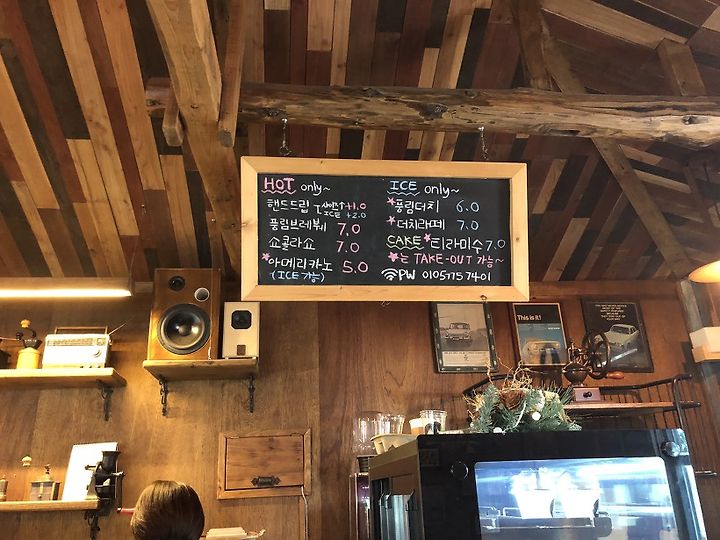 HOT only~
핸드드립 사이즈↑+1.0
ICE +2.0
풍림브레붸 7.0
쇼콜라쇼 7.0
*아메리카노 5.0
(ICE 가능)
ICE only~
*풍림더치 6.0
*더치라떼 7.0
CAKE *티라미수 7.0
*는 TAKE-OUT 가능~
PW 0105757401
This is it!